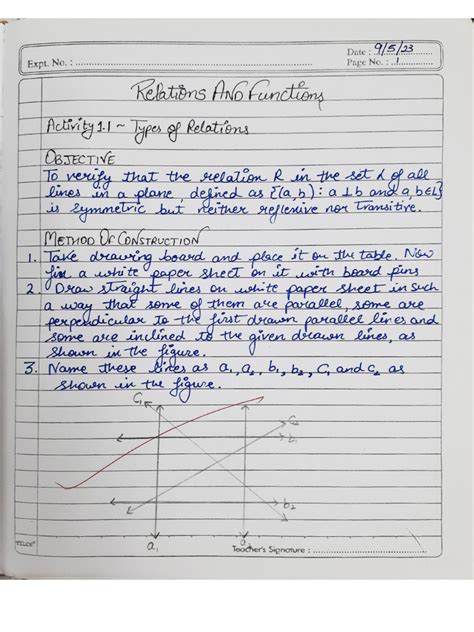 Date : 9/5/23
Expt. No. :
Page No. : 1
Relations And Functions
Activity 1.1 ~ Types of Relations
OBJECTIVE
To verify that the relation R in the set L of all
lines in a plane, defined as {(a,b) : a ⊥ b and a,b ∈ L}
is symmetric but neither reflexive nor transitive.
METHOD OF CONSTRUCTION
1. Take drawing board and place it on the table. Now
fix a white paper sheet on it with board pins
2. Draw straight lines on white paper sheet in such
a way that some of them are parallel, some are
perpendicular to the first drawn parallel lines and
some are inclined to the given drawn lines, as
shown in the figure.
3. Name these lines as a₁, a₂, b₁, b₂, C₁ and c₂ as
shown in the figure.
C₁
c₂
b₁
b₂
a₁
Teacher's Signature :